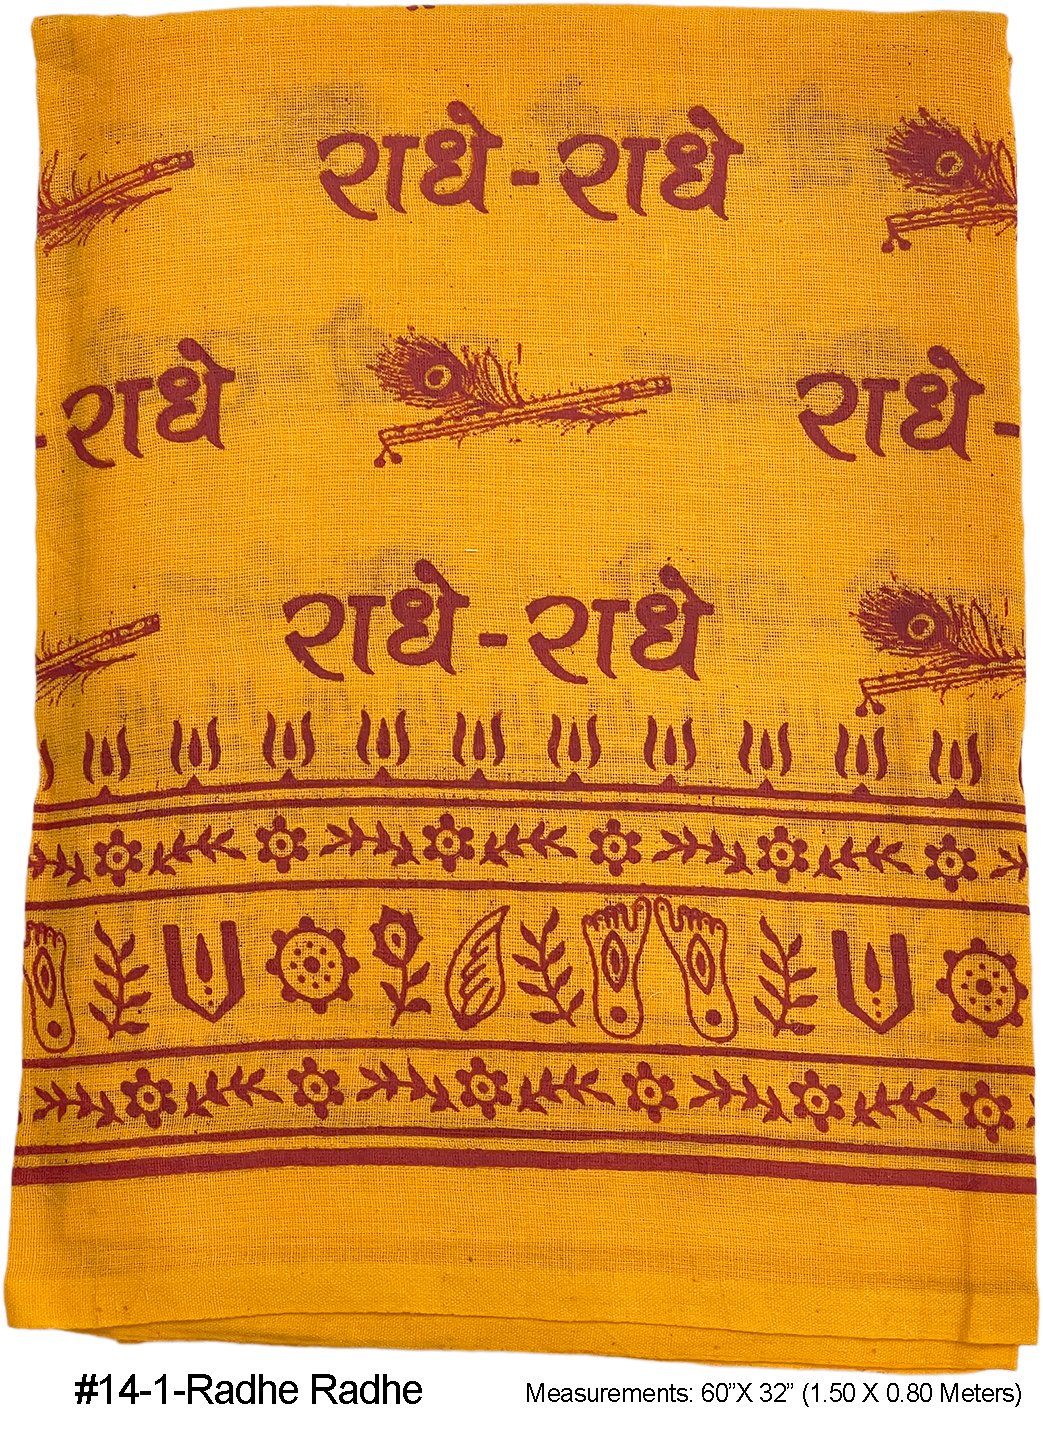 राधे - राधे
- राधे
राधे -
राधे - राधे
#14-1-Radhe Radhe
Measurements: 60”X 32” (1.50 X 0.80 Meters)